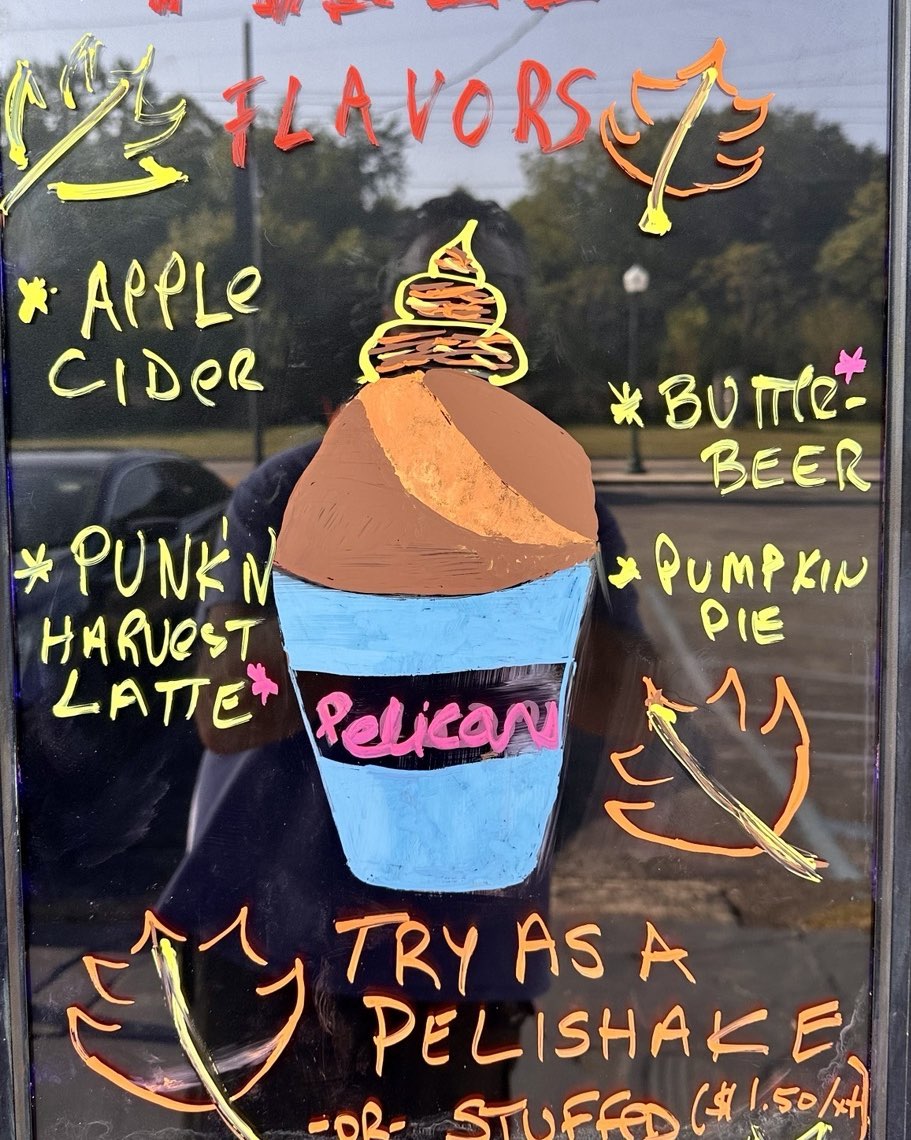 FLAVORS
* APPLE
CIDER
* BUTTER-*
BEER
* PUNK'N
HARVEST
LATTE*
* PUMPKIN
PIE
Pelican
TRY AS A
PELISHAKE
-OR- STUFFED ($1.50/xt)